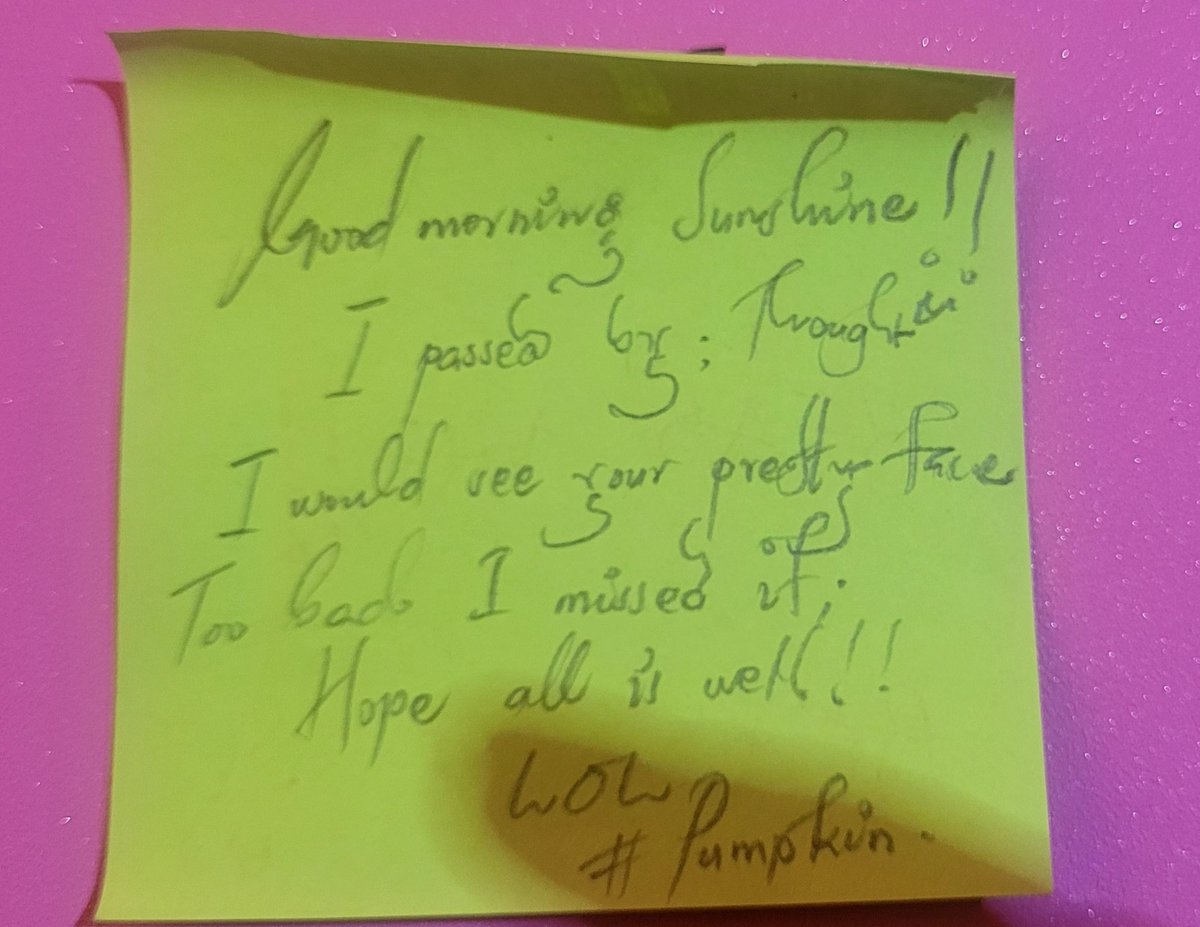 Good morning Sunshine!!
I passed by; Through
I would see your pretty face
Too bad I missed it;
Hope all is well!!
# Pumpkin.